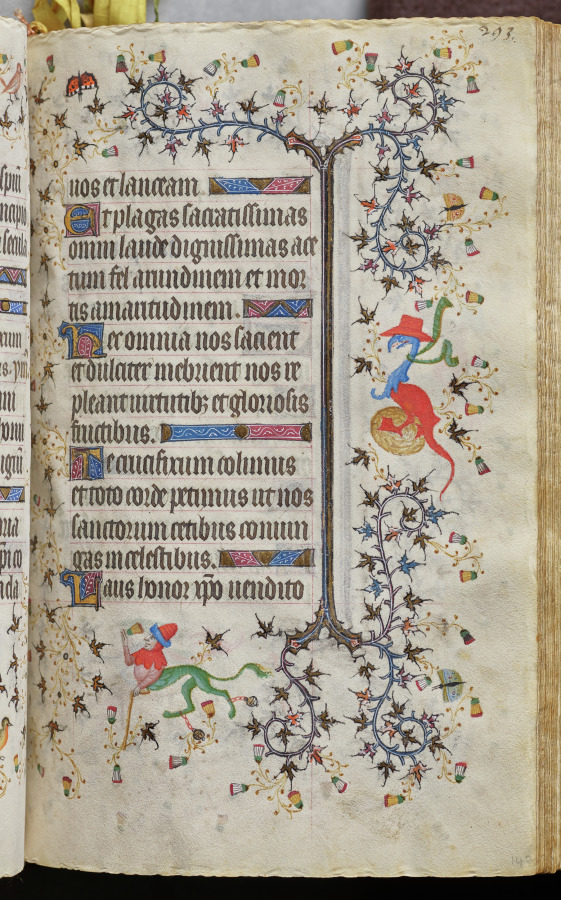 293.
uos et lanceam.
Et plagas sacratissimas
omni laude dignissimas ace
tum fel arundinem et mor
tis amaritudinem.
Hec omnia nos sacient
et dulciter inebrient nos re
pleant uirtutibꝫ et gloriosis
fructibus.
Te crucifixum colimus
et toto corde petimus ut nos
sanctorum cetibus coniun
gas in celestibus.
Laus honor xp̄o uendito